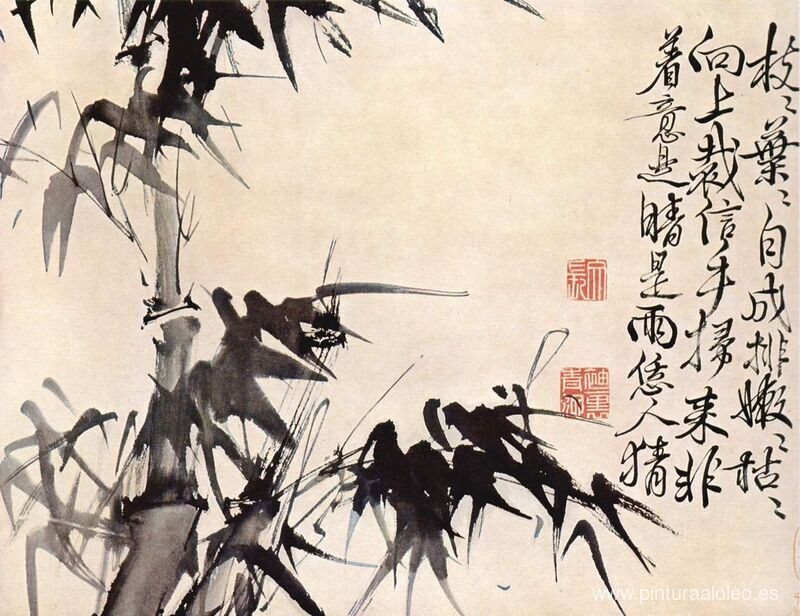 枝〻葉〻自成排嫩〻枯〻
向上裁信手掃來非
着意是晴是雨恁人猜
文長
袖裏青蛇
www.pinturaaloleo.es